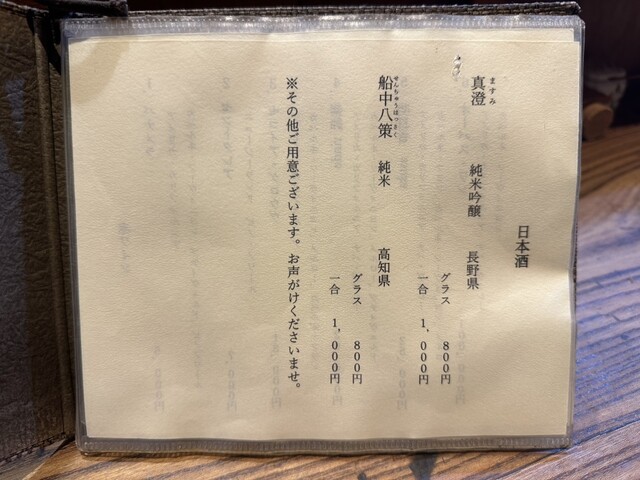 日本酒
真澄 純米吟醸 長野県
ますみ
グラス 800円
一合 1,000円
船中八策 純米 高知県
せんちゅうはっさく
グラス 800円
一合 1,000円
※その他ご用意ございます。お声がけくださいませ。